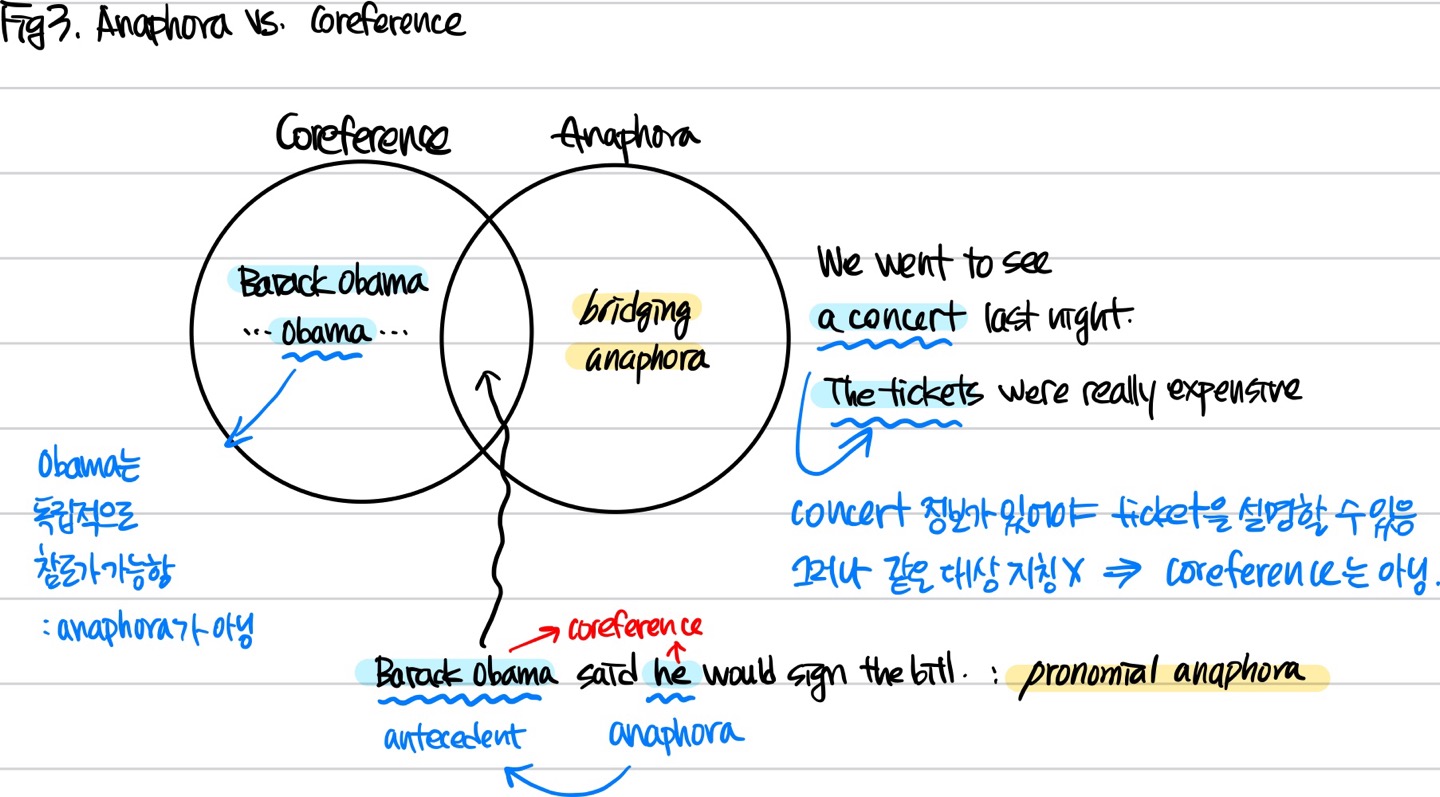 Fig3. Anaphora vs. Coreference
Coreference
Anaphora
Barack Obama
... Obama ...
bridging
anaphora
We went to see
a concert last night.
The tickets were really expensive
Obama는
독립적으로
참조가 가능함
: anaphora가 아님
concert 정보가 있어야 ticket을 설명할 수 있음
그러나 같은 대상 지칭 X ⇒ coreference는 아님.
coreference
Barack Obama said he would sign the bill. : pronomial anaphora
antecedent
anaphora